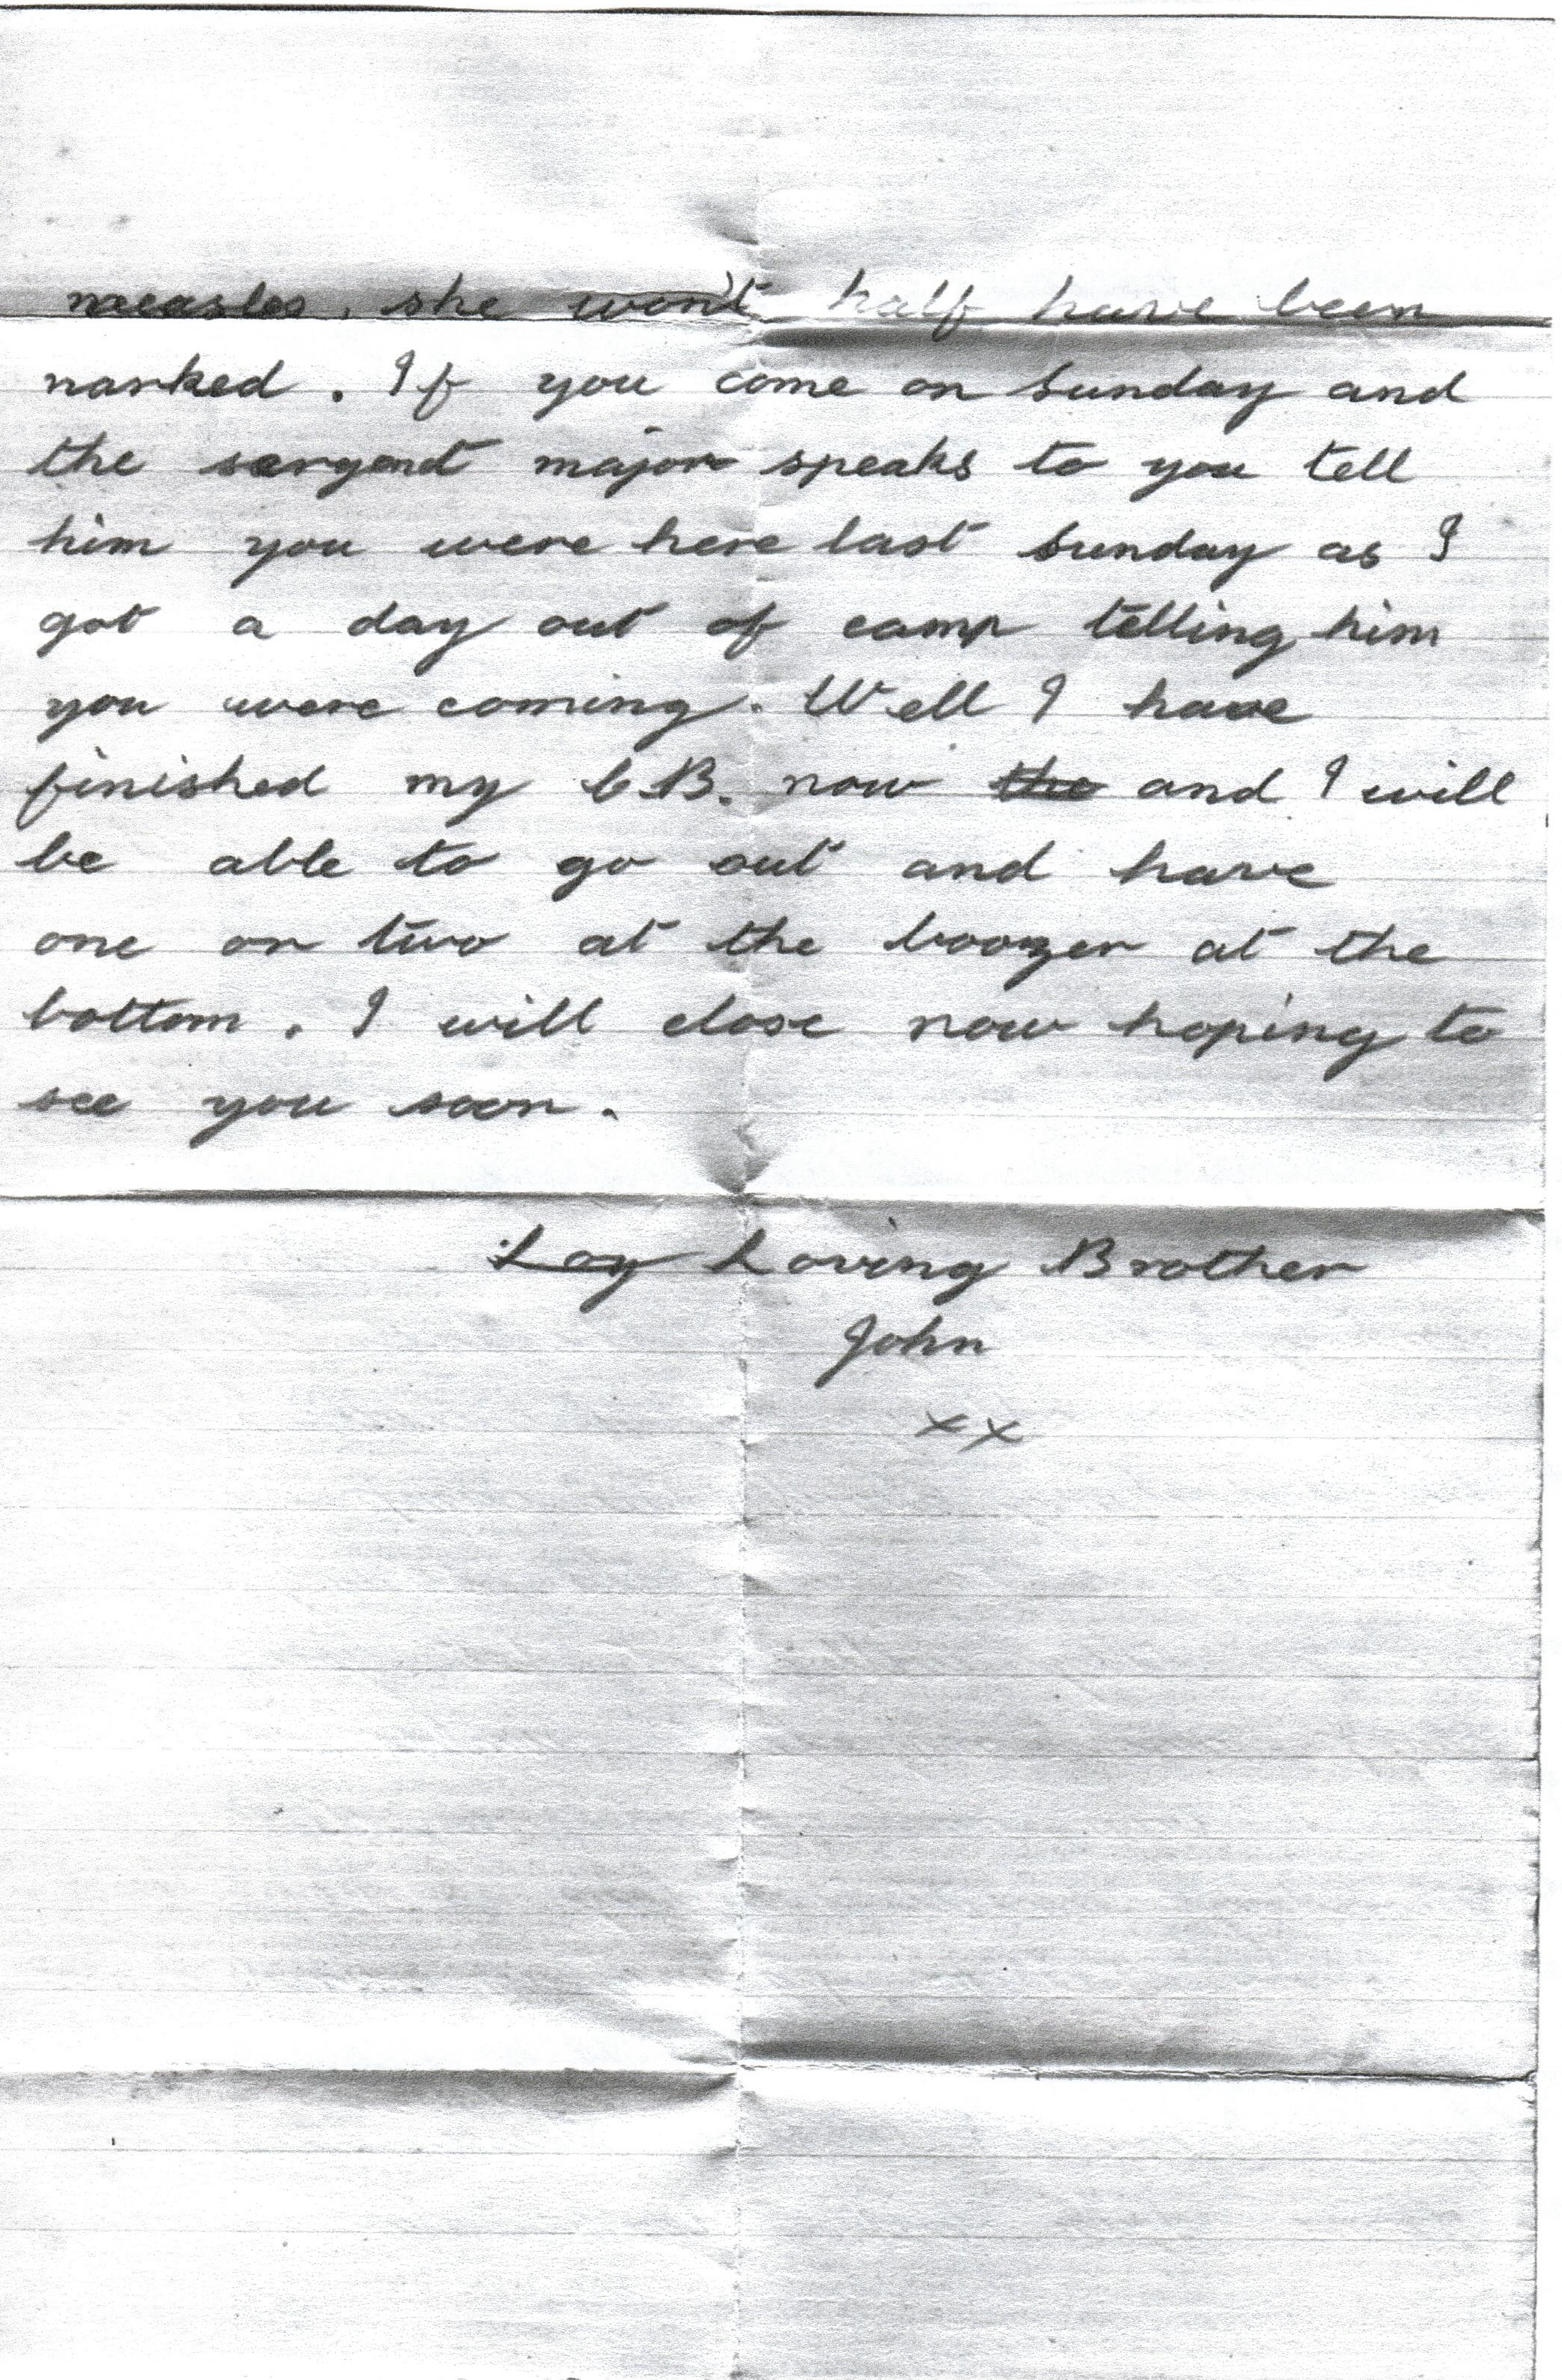 measles. she won't half have been
narked. If you come on Sunday and
the sargent major speaks to you tell
him you were here last Sunday as I
got a day out of camp telling him
you were coming. Well I have
finished my C.B. now the and I will
be able to go out and have
one or two at the boozer at the
bottom. I will close now hoping to
see you soon.
Loving Brother
John
xx